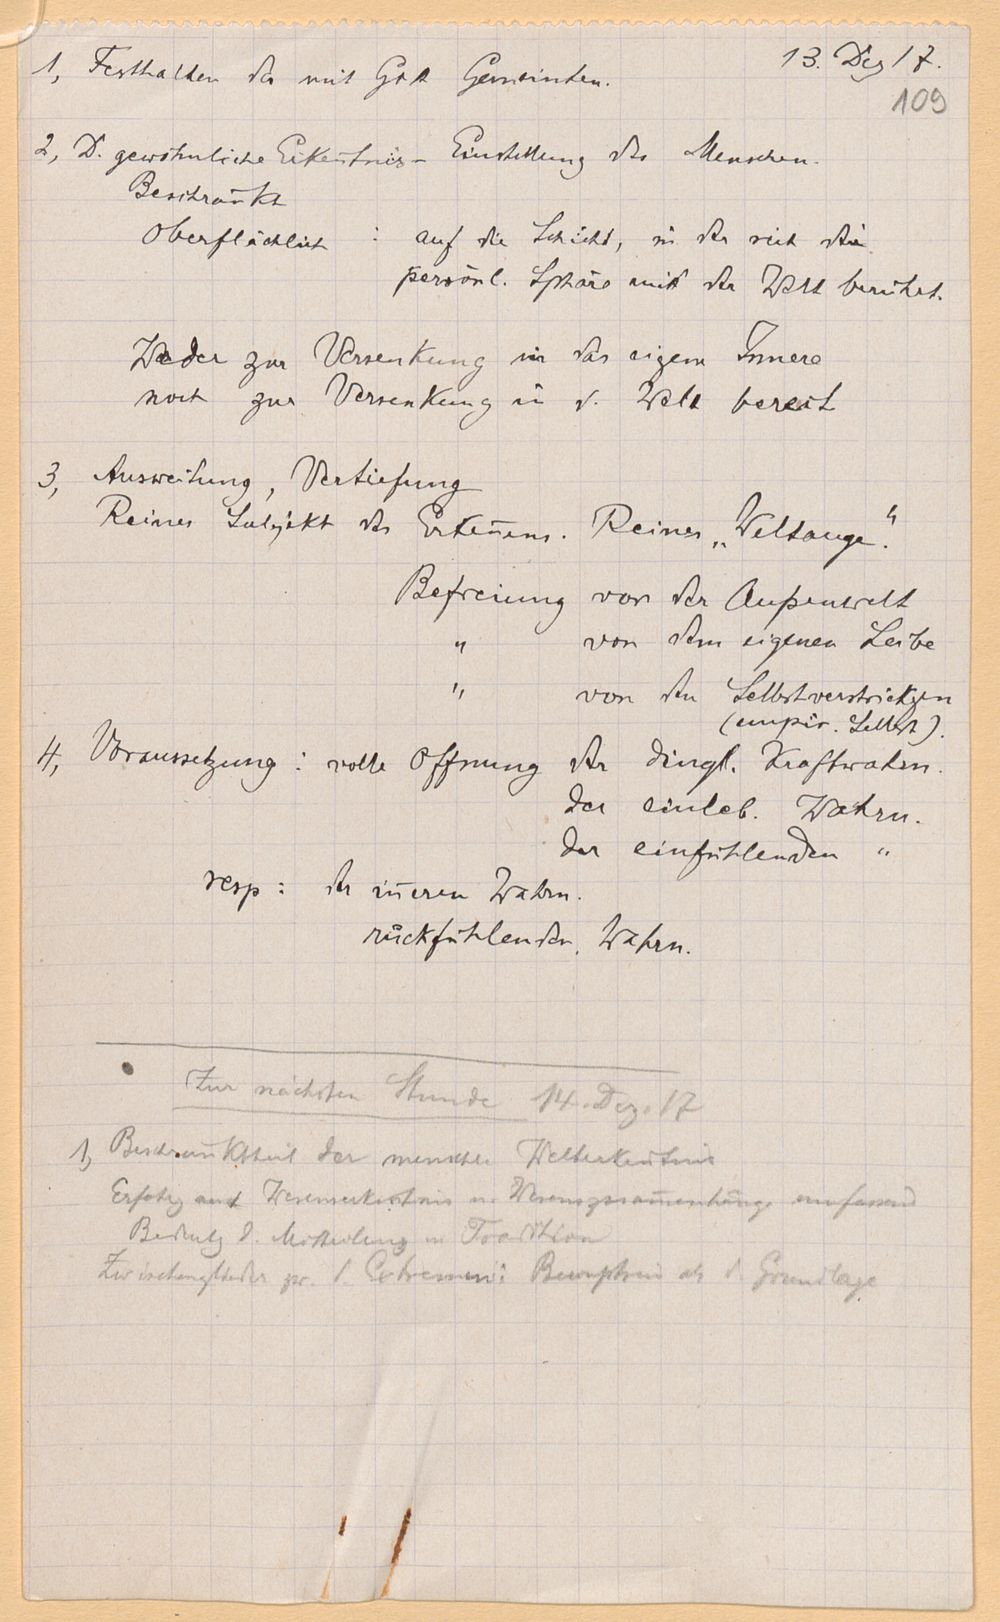 13. Dez 17.
109
1, Festhalten des mit Gott Gemeinten.
2, D. gewöhnliche Erkenntnis-Einstellung des Menschen.
Beschränkt
oberflächlich : auf die Schicht, in der sich die
persönl. Sphäre mit der Welt berührt.
Weder zur Versenkung in das eigene Innere
noch zur Versenkung in d. Welt bereit
3, Ausweitung, Vertiefung
Reines Subjekt des Erkennens. Reines „Weltauge“.
Befreiung von der Außenwelt
" von dem eigenen Leibe
" von den Selbstverstrickgen
(empir. Selbst).
4, Voraussetzung : volle Öffnung der dingl. Kraftwahrn.
der einleb. Wahrn.
der einfühlenden "
resp : der inneren Wahrn.
rückfühlenden Wahrn.
Zur nächsten Stunde 14. Dez. 17
1, Beschränktheit der menschl. Welterkenntnis
Erfahrg und Wesenserkenntnis u. Wesenszusammenhänge umfassend
Bedeutg d. Mitteilung u Tradition
Zwischenglieder zw. d. Extremen: Bewußtsein als d. Grundlage